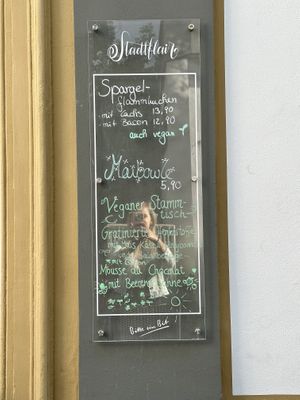 Stadtflair
Spargel-
flammkuchen
- mit Lachs 13,90
- mit Bacon 12,90
auch vegan
Maibowle
5,90
Veganer Stamm-
tisch-
Gratinierte
mit
Mousse au Chocolat
mit Beeren
Bitte ein Bit